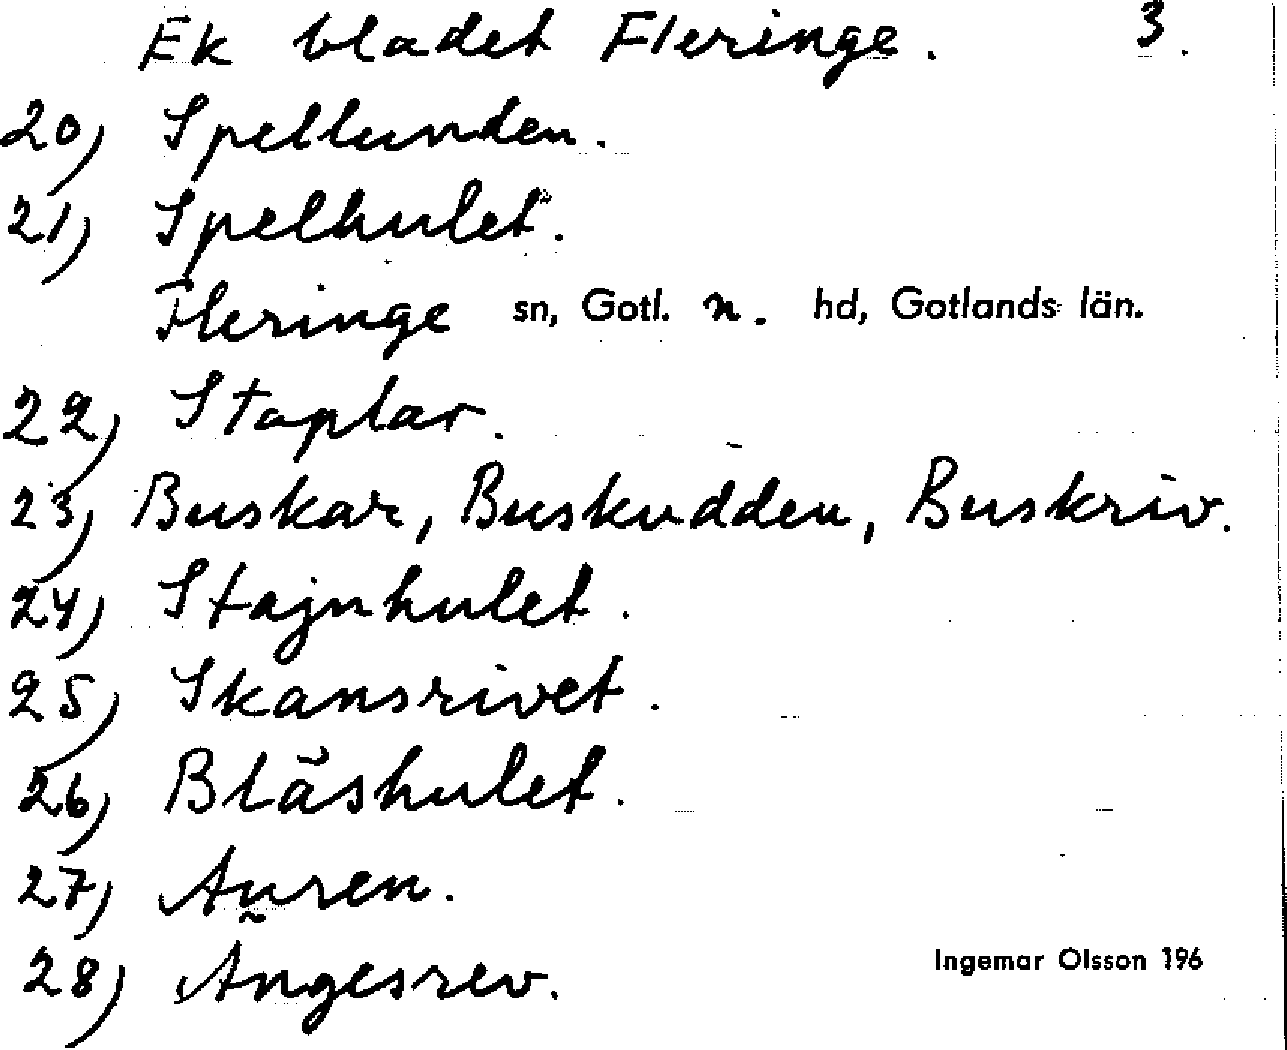 Ek bladet Fleringe. 3.
20) Spellunden.
21) Spelhulet.
Fleringe sn, Gotl. n. hd, Gotlands län.
22) Staplar.
23) Buskar, Buskudden, Buskriv.
24) Stajnhulet.
25) Skansrivet.
26) Blåshulet.
27) Auren.
28) Ängesrev.
Ingemar Olsson 196